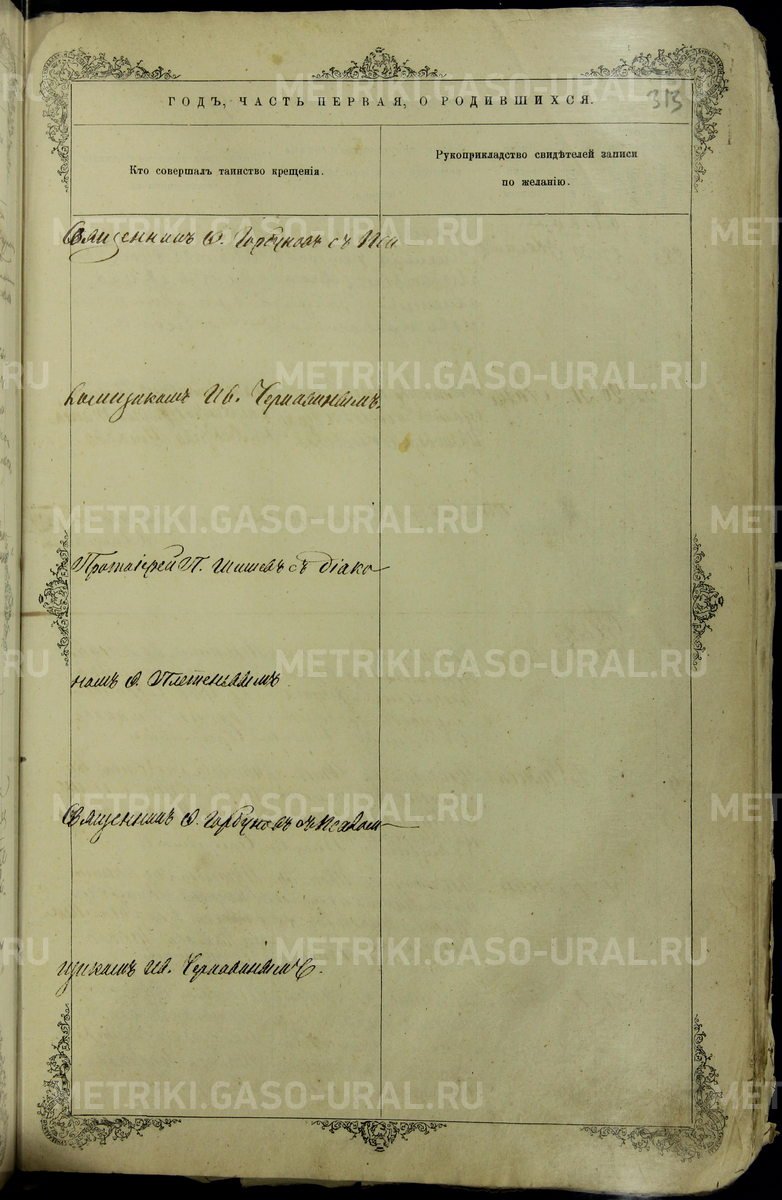 ГОДЪ, ЧАСТЬ ПЕРВАЯ, О РОДИВШИХСЯ.
313
Кто совершалъ таинство крещенія.
Рукоприкладство свидѣтелей записи
по желанію.
Священникъ Ѳ. Горбуновъ съ Пса
ломщикомъ Ив. Чернавинымъ.
Протоіерей П. Шишевъ съ діако
номъ Ѳ. Плетеневымъ
Священникъ Ѳ. Горбуновъ съ псалом
щикомъ Ив. Чернавинымъ.
METRIKI.GASO-URAL.RU